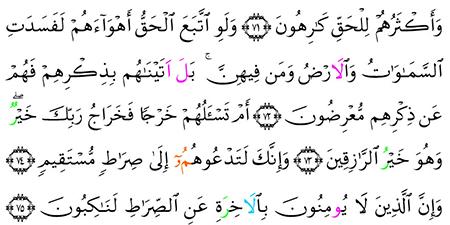 وَأَكْثَرُهُمْ لِلْحَقِّ كَٰرِهُونَ ۝٧١ وَلَوِ اِتَّبَعَ اَ۬لْحَقُّ أَهْوَآءَهُمْ لَفَسَدَتِ
اِ۬لسَّمَٰوَٰتُ وَالَارْضُ وَمَن فِيهِنَّۚ بَلَ اَتَيْنَٰهُم بِذِكْرِهِمْ فَهُمْ
عَن ذِكْرِهِم مُّعْرِضُونَ ۝٧٢ أَمْ تَسْـَٔلُهُمْ خَرْجًا فَخَرَاجُ رَبِّكَ خَيْرٌۖ
وَهُوَ خَيْرُ اُ۬لرَّٰزِقِينَ ۝٧٣ وَإِنَّكَ لَتَدْعُوهُمُۥٓ إِلَىٰ صِرَٰطٍ مُّسْتَقِيمٍ ۝٧٤
وَإِنَّ اَ۬لَّذِينَ لَا يُومِنُونَ بِالَاخِرَةِ عَنِ اِ۬لصِّرَٰطِ لَنَٰكِبُونَ ۝٧٥